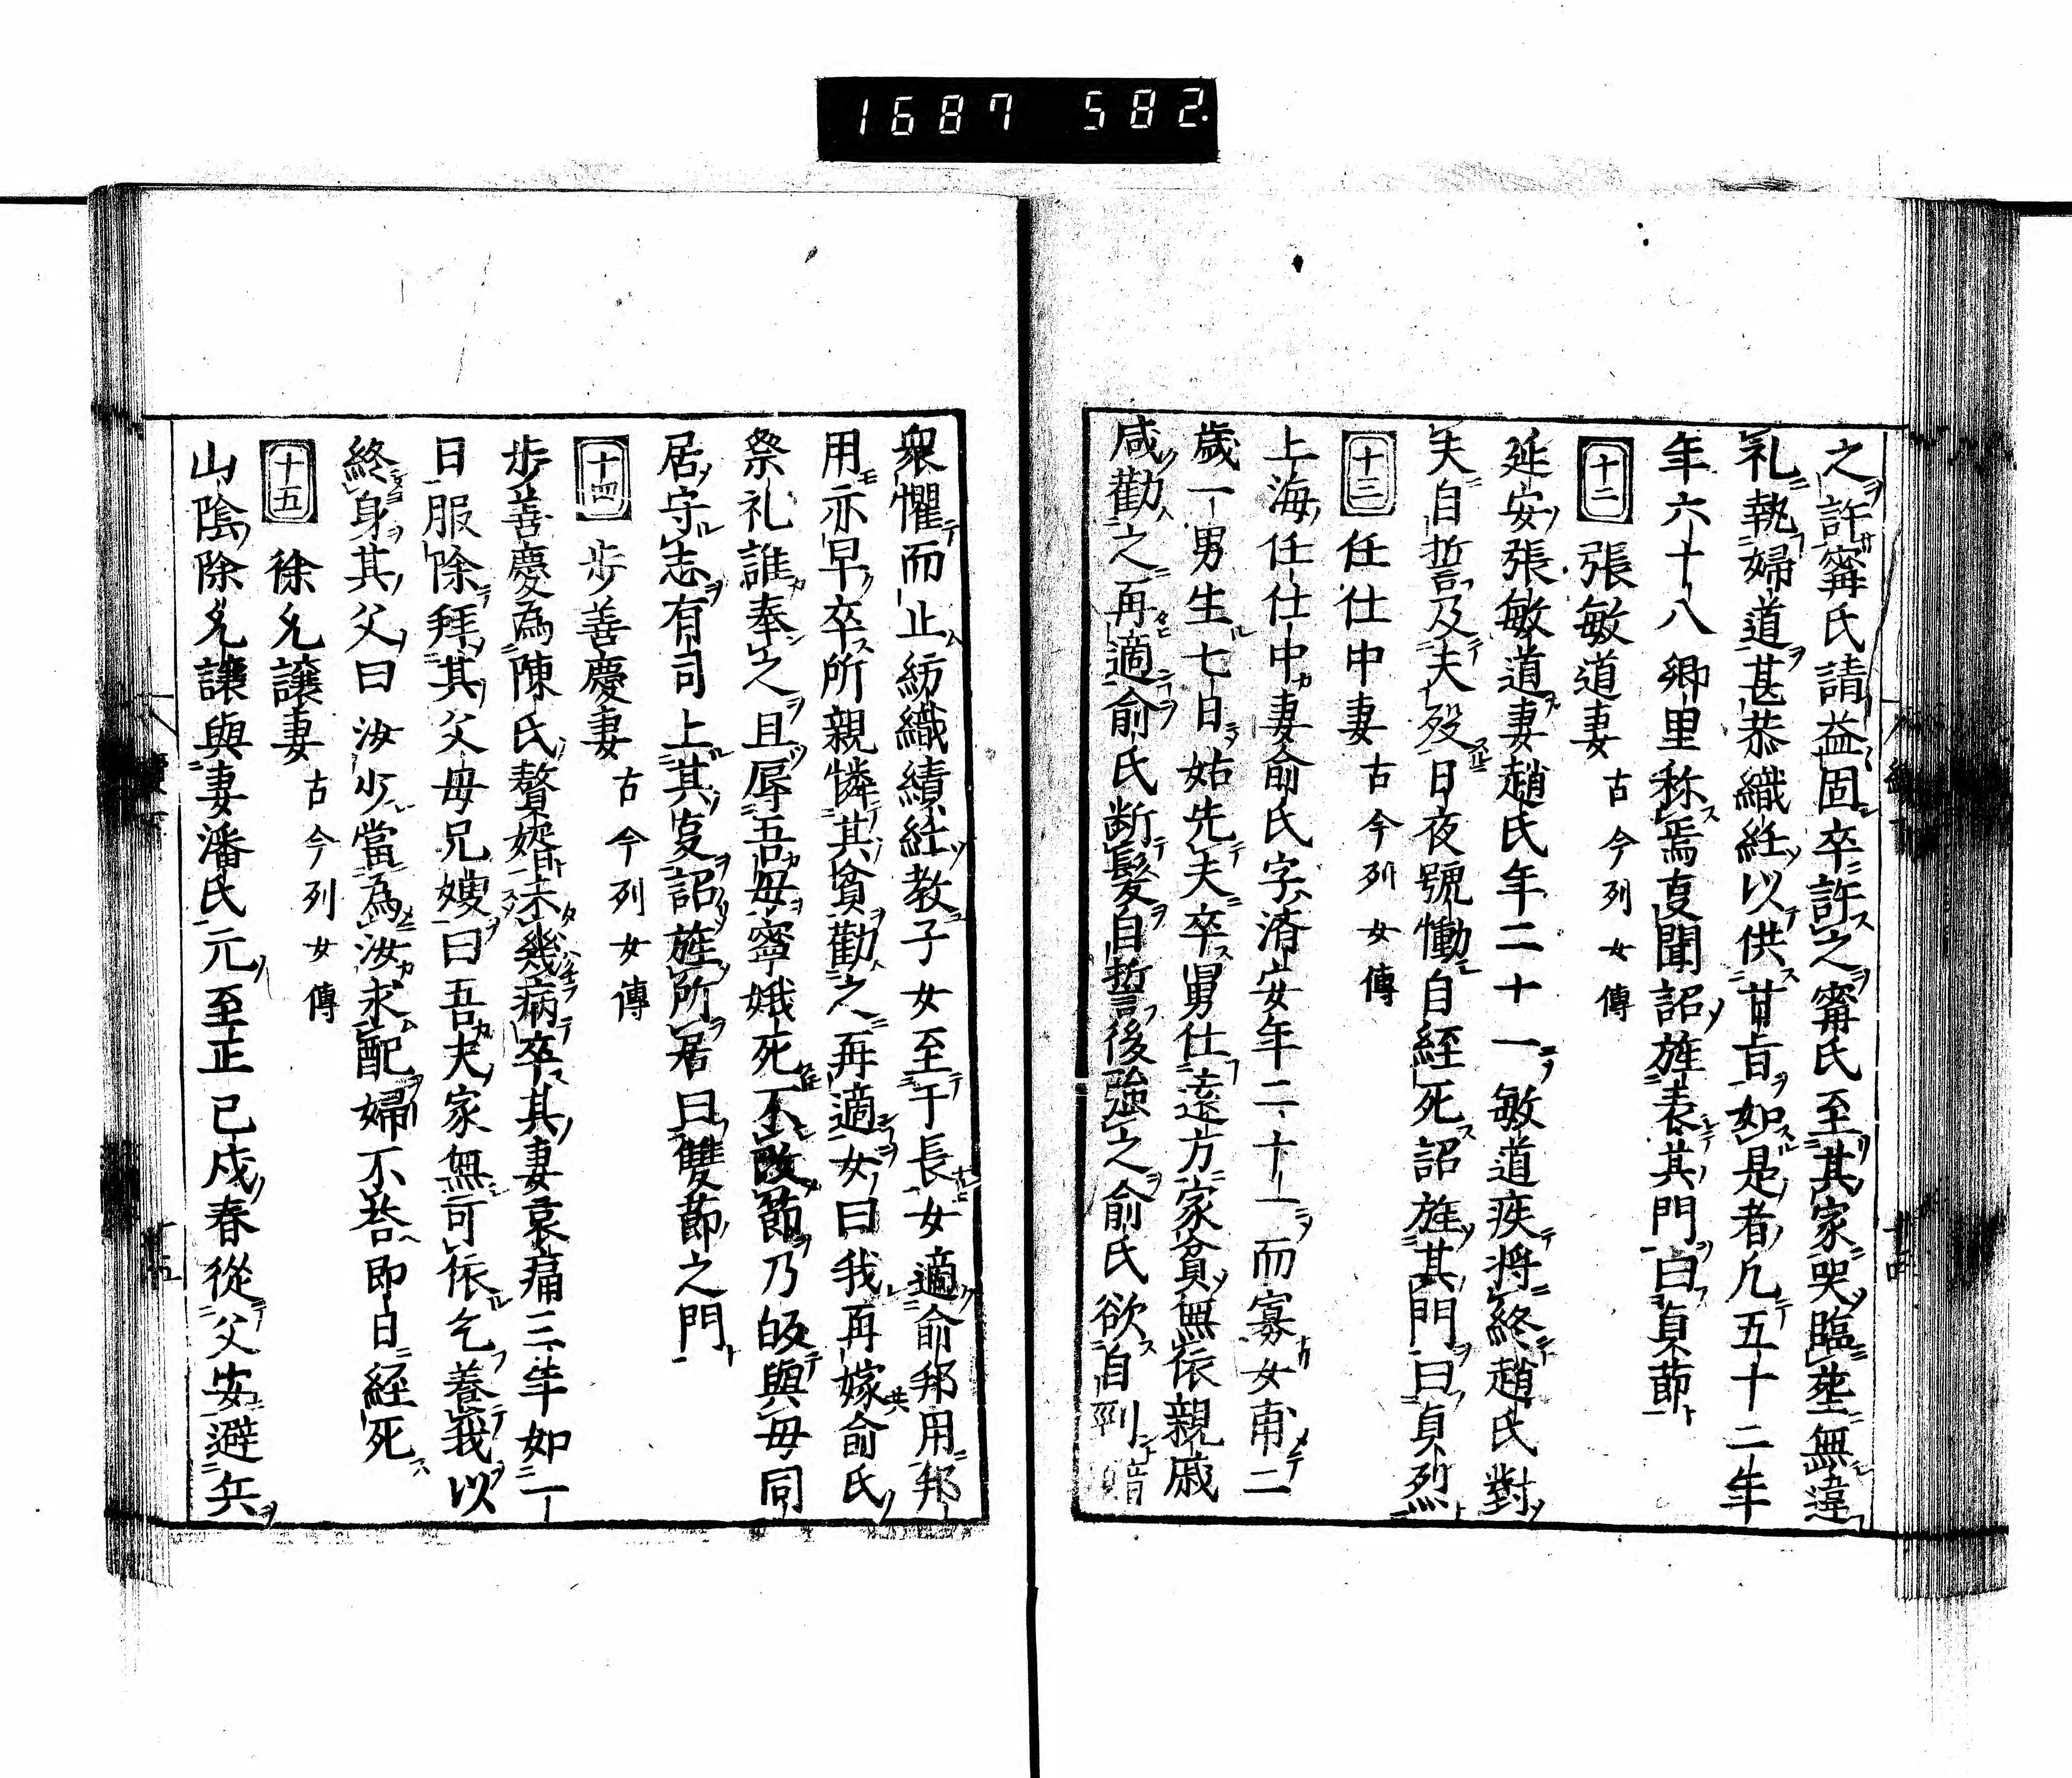 1687 582.
之許寗氏請益固卒許之寗氏至其家哭臨塟無違
礼執婦道甚恭織紝以供甘旨如是者凡五十二年
年六十八郷里称焉亊聞詔旌表其門曰貞節
十二 張敏道妻 古今列女傳
延安張敏道妻趙氏年二十一敏道疾将終趙氏對
夫自誓及夫歿日夜號慟自經死詔旌其門曰貞烈
十三 任仕中妻 古今列女傳
上海任仕中妻俞氏字淸安年二十一而寡女甫二
歳一男生七日姑先夫卒舅仕遠方家貧無依親戚
咸勸之再適俞氏断髮自誓後強之俞氏欲自刎
衆懼而止紡織績紝教子女至于長女適俞邦用邦
用亦早卒所親憐其貧勸之再適女曰我再嫁俞氏
祭礼誰奉之且辱吾母寧娥死不改節乃皈與母同
居守志有司上其亊詔旌所居曰雙節之門
十四 步善慶妻 古今列女傳
步善慶為陳氏贅婿未幾病卒其妻哀痛三年如一
日服除拜其父母兄嫂曰吾夫家無可依乞養我以
終身其父曰汝少當為汝求配婦不荅即自經死
十五 徐允讓妻 古今列女傳
山隂徐允讓與妻潘氏元至正己戍春從父安避兵